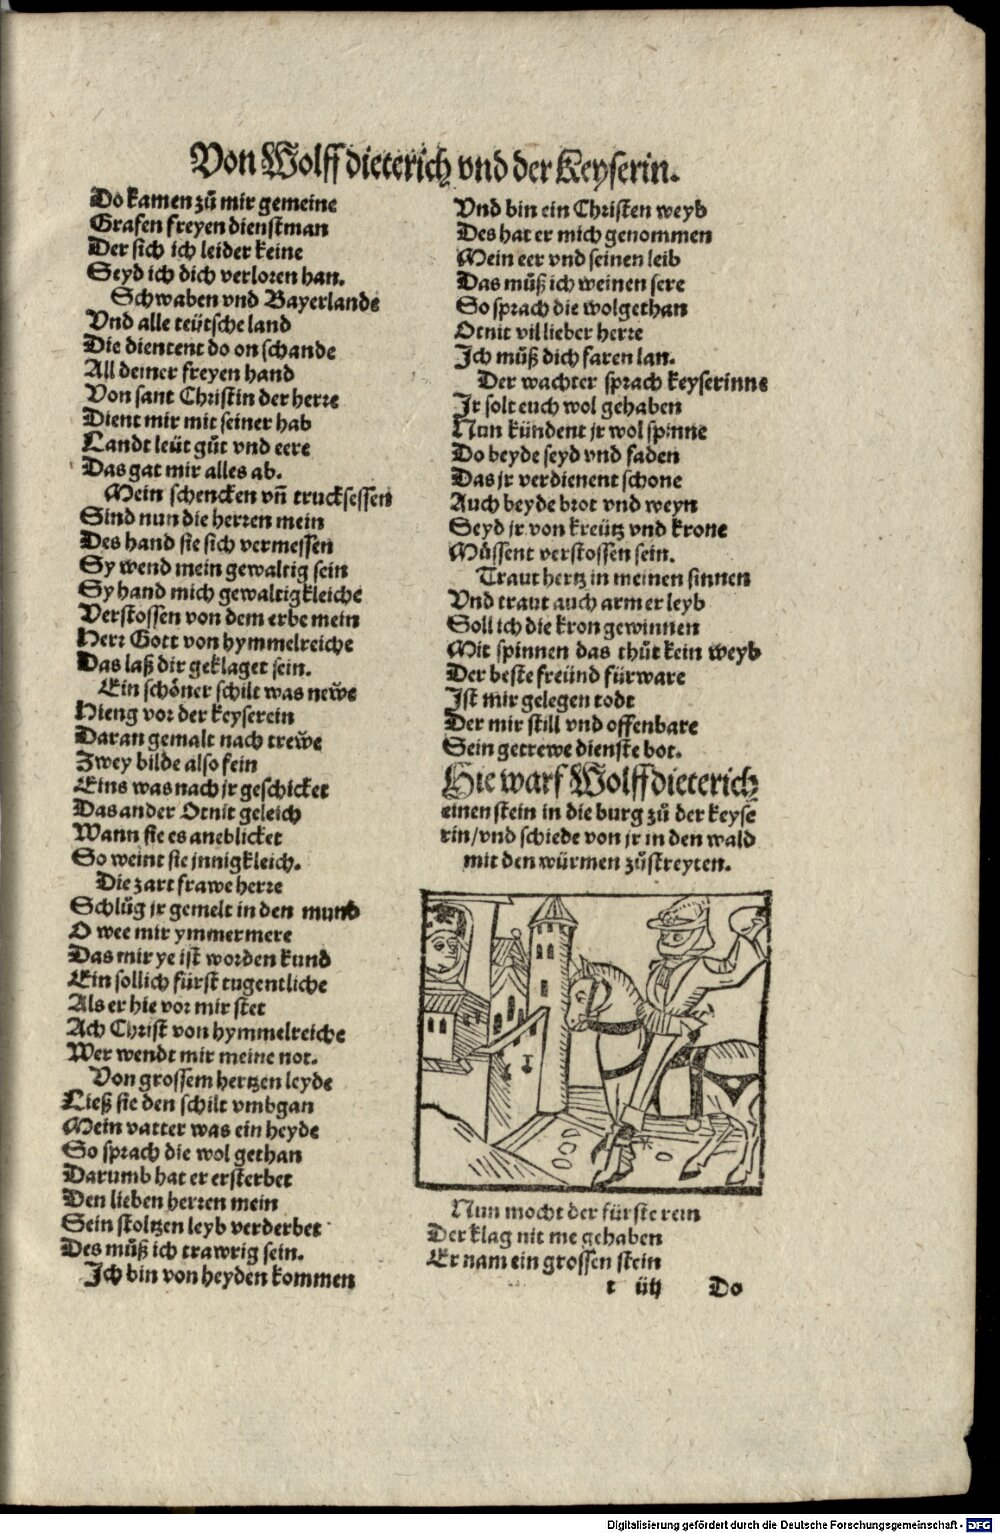 Von Wolffdieterich vnd der Keyserin.
Do kamen zů mir gemeine
Grafen freyen dienstman
Der sich ich leider keine
Seyd ich dich verloren han.
Schwaben vnd Bayerlande
Vnd alle teütsche land
Die dientent do on schande
All deiner freyen hand
Von sant Christin der herre
Dient mir mit seiner hab
Landt leüt gůt vnd eere
Das gat mir alles ab.
Mein schencken vn̄ trucksessen
Sind nun die herren mein
Des hand sie sich vermessen
Sy wend mein gewaltig sein
Sy hand mich gewaltigkleiche
Verstossen von dem erbe mein
Herr Gott von hymmelreiche
Das laß dir geklaget sein.
Ein schöner schilt was newe
Hieng vor der keyserein
Daran gemalt nach trewe
Zwey bilde also fein
Eins was nach jr geschicket
Das ander Otnit geleich
Wann sie es aneblicket
So weint sie jnnigkleich.
Die zart frawe herre
Schlůg jr gemelt in den mund
O wee mir ymmermere
Das mir ye ist worden kund
Ein sollich fürst tugentliche
Als er hie vor mir stet
Ach Christ von hymmelreiche
Wer wendt mir meine not.
Von grossem hertzen leyde
Ließ sie den schilt vmbgan
Mein vatter was ein heyde
So sprach die wol gethan
Darumb hat er ersterbet
Den lieben herren mein
Sein stoltzen leyb verderbet
Des můß ich trawrig sein.
Ich bin von heyden kommen
Vnd bin ein Christen weyb
Des hat er mich genommen
Mein eer vnd seinen leib
Das můß ich weinen sere
So sprach die wolgethan
Otnit vil lieber herre
Ich můß dich faren lan.
Der wachter sprach keyserinne
Ir solt euch wol gehaben
Nun kündent jr wol spinne
Do beyde seyd vnd faden
Das jr verdienent schone
Auch beyde brot vnd weyn
Seyd jr von kreütz vnd krone
Müssent verstossen sein.
Traut hertz in meinen sinnen
Vnd traut auch armer leyb
Soll ich die kron gewinnen
Mit spinnen das thůt kein weyb
Der beste freünd fürware
Ist mir gelegen todt
Der mir still vnd offenbare
Sein getrewe dienste bot.
Hie warf Wolffdieterich
einen stein in die burg zů der keyse
rin/vnd schiede von jr in den wald
mit den würmen zůstreyten.
Nun mocht der fürste rein
Der klag nit me gehaben
Er nam ein grossen stein
t iiij Do
Digitalisierung gefördert durch die Deutsche Forschungsgemeinschaft - DFG